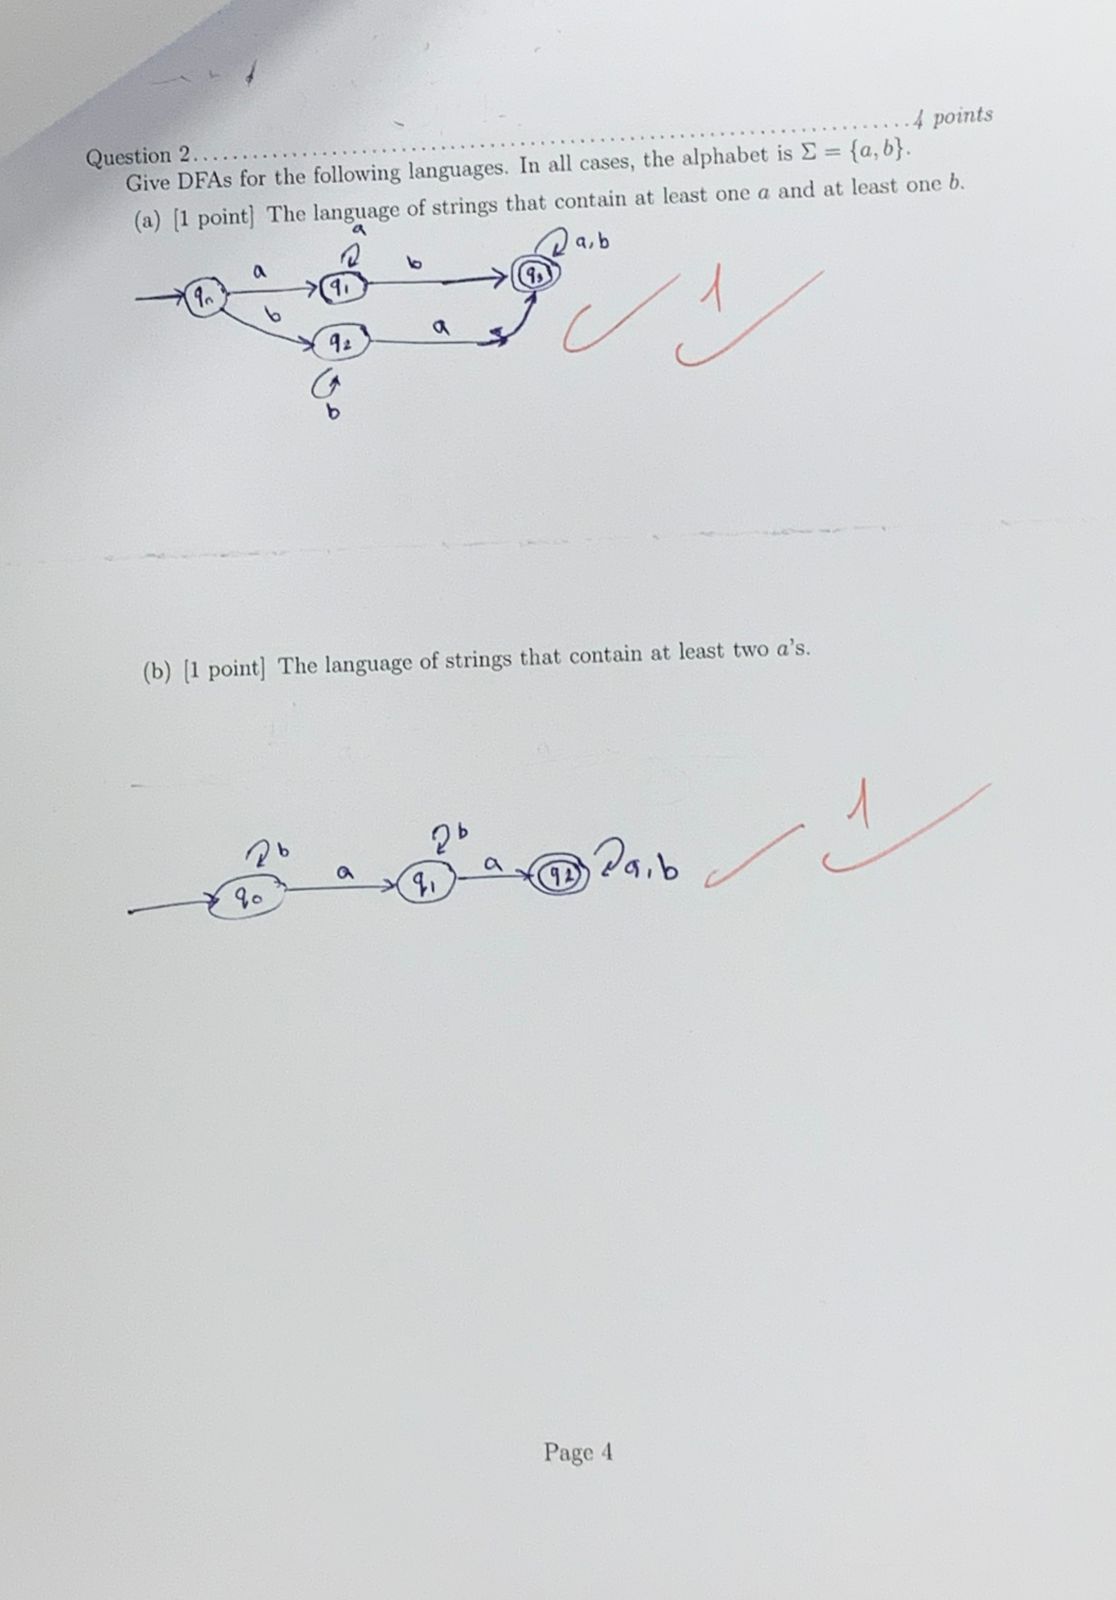 Question 2..........................................................................4 points
Give DFAs for the following languages. In all cases, the alphabet is Σ = {a, b}.
(a) [1 point] The language of strings that contain at least one a and at least one b.
a
a, b
a
b
q1
q3
1
b
q2
a
b
(b) [1 point] The language of strings that contain at least two a's.
1
b
b
a
a
a, b
q0
q1
q2
Page 4